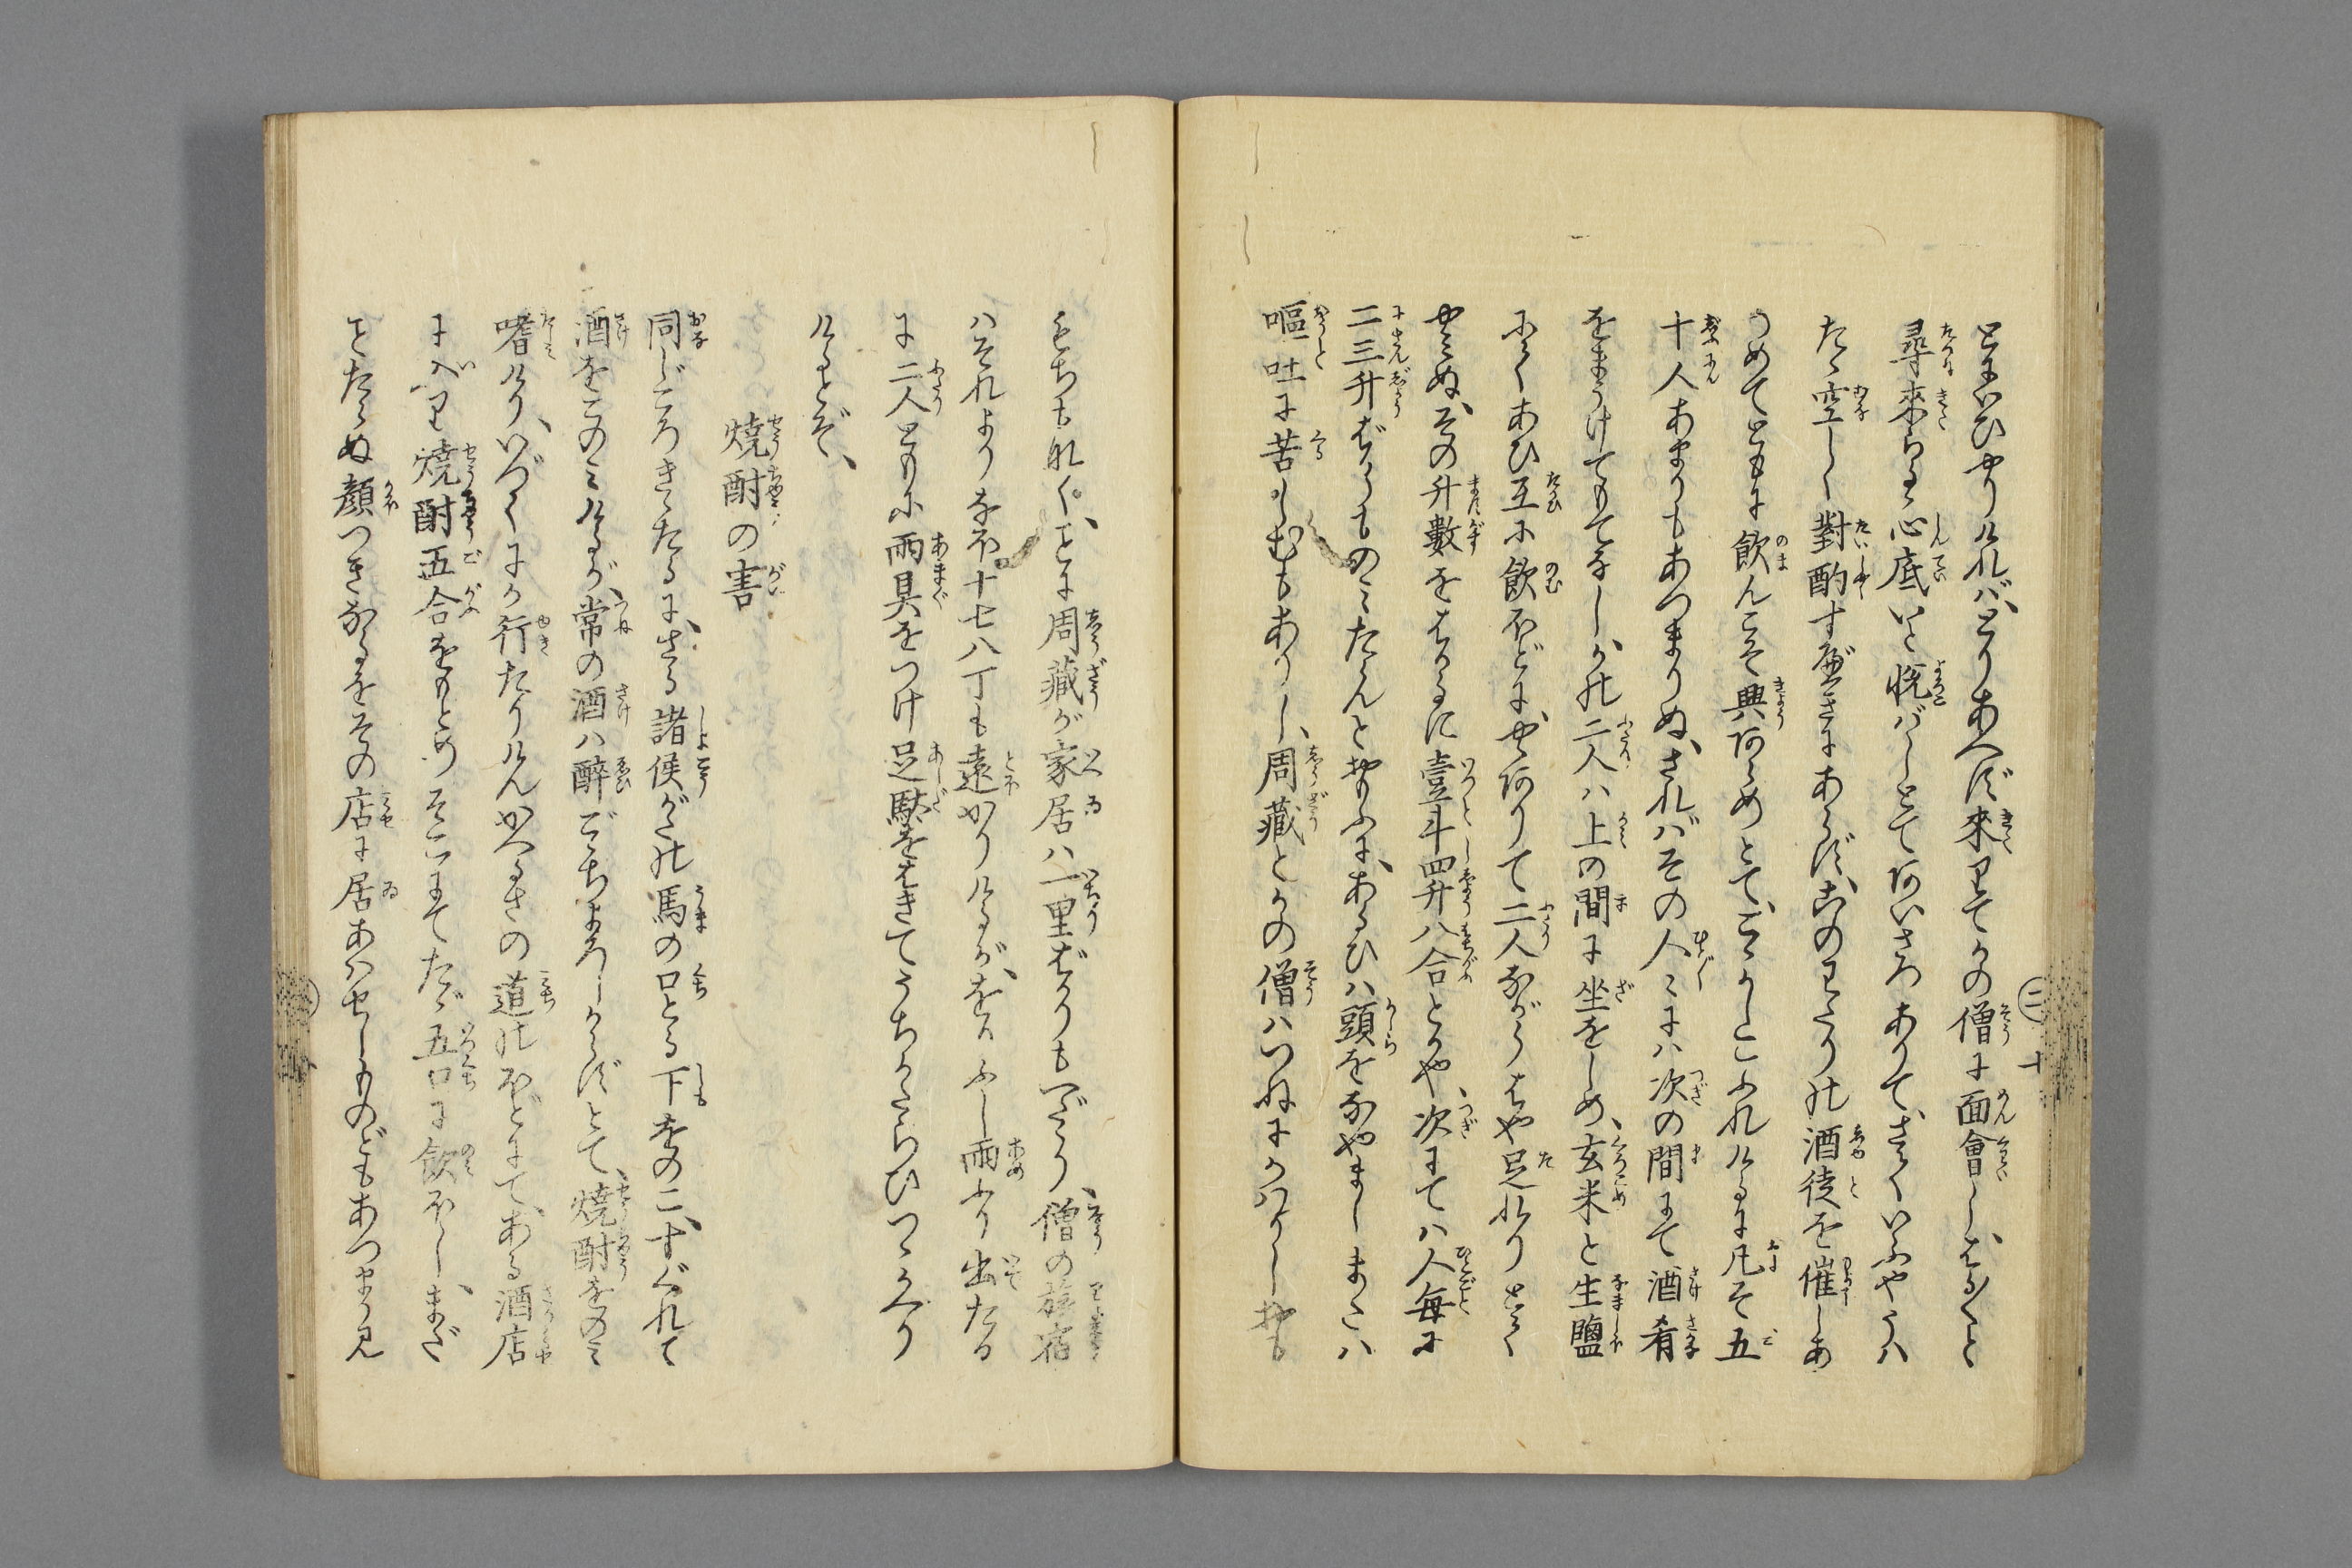 といひやりければ、とりあへず來りてかの僧に面會し、はる〴〵と
尋來らるゝ心底いと悦ばしとて
たゞ空しく對酌すべきにあらず、このわたりの酒徒を催しあ
つめてともに飲んこそ興あらめとて、ふれけるに凡そ五
十人あまりもあつまりぬ、さればその人〻には次の間にて酒肴
をまうけてもてなし、かの二人は上の間に坐をしめ、玄米と生鹽
にてあひ互に飲ほどに、二人ながらはや足れりとて
やみぬ、その升數をはかるに壹斗四升八合とかや、次にては人毎に
二三升ばかりものみたらんとおもふに、あるひは頭をなやましまたは
嘔吐に苦しむもありし、周藏とかの僧はつねにかはりしおも
もちもなく、ことに周藏が家居は一里ばかりもへだゝり、僧の旅宿
はそれよりなほ十七八丁も遠かりけるが、をりふし雨ふり出たる
に二人ともに雨具をつけ足駄をはきてうちかたらひつゝかへり
けるとぞ、
燒酎の害
同じころきゝたるに、さる諸侯がたの馬の口とる下をのこ、すぐれて
酒をこのみけるが、常の酒は醉ごゝちよろしからずとて、燒酎をのみ
嗜けり、いづくにか行たりけんかへるさの道のほどにて、ある酒店
に入り燒酎五合をもとめそこにてたゞ五口に飲ほし、まだ
ことたらぬ顏つきなるをその店に居あはせしものどもあつまり見
二
十